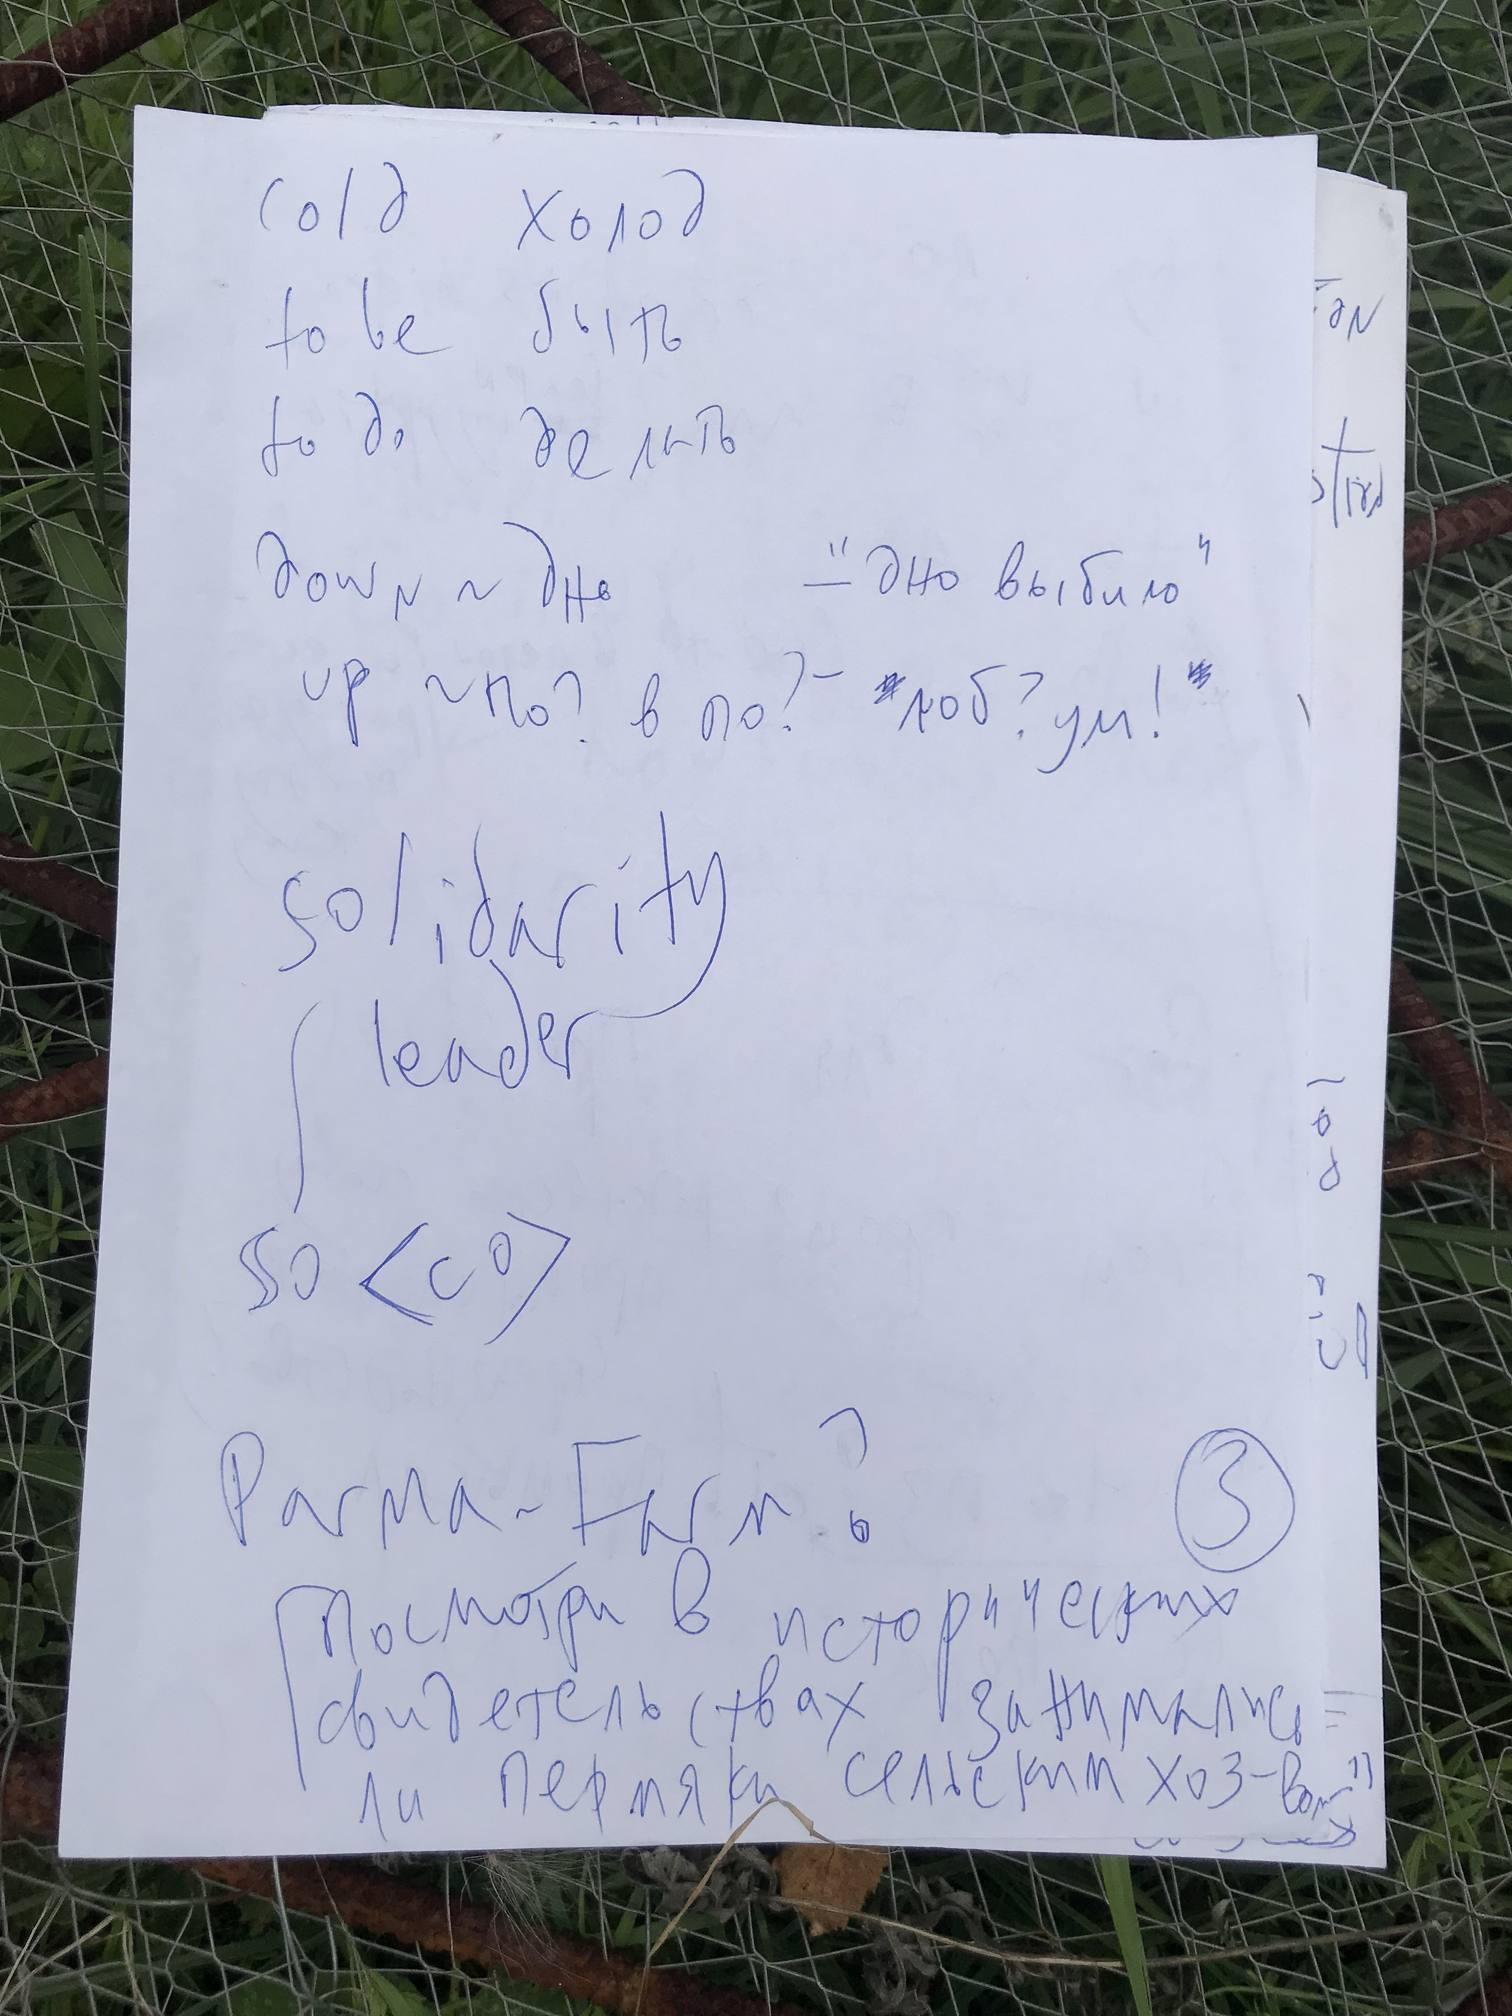 cold холод
to be быть
to do делать
down ~ дно – "дно выбило"
up ~ по? в по? – "лоб? ум!"
solidarity
leader
so <со>
Parma-Farm?
3
Посмотри в исторических
свидетельствах занимались
ли пермяки сельским хоз-вом